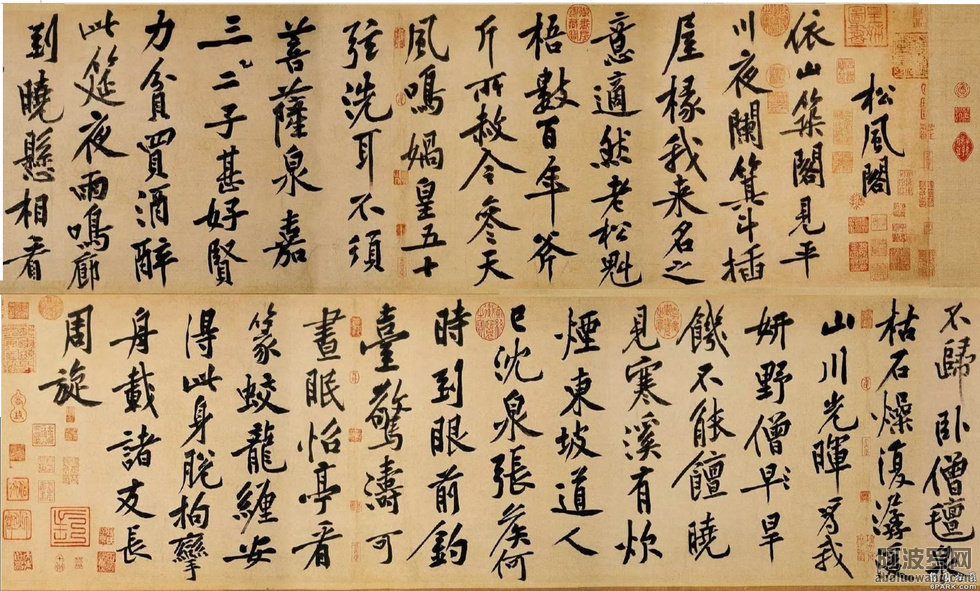 松風閣
依山築閣見平
川夜闌箕斗插
屋椽我來名之
意適然老松魁
梧數百年斧
斤所赦令參天
風鳴媧皇五十
弦洗耳不須
菩薩泉嘉
三二子甚好賢
力貧買酒醉
此筵夜雨鳴廊
到曉懸相看
不歸臥僧氈泉
枯石燥復潺湲
山川光暉為我
妍野僧早旱
饑不能饘曉
見寒溪有炊
煙東坡道人
已沈泉張侯何
時到眼前釣
臺驚濤可
晝眠怡亭看
篆蛟龍纏安
得此身脫拘攣
舟載諸友長
周旋
阿波罗网
6PARK.COM